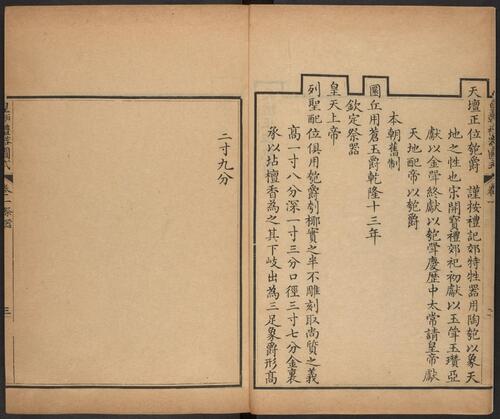 天壇正位匏爵 謹按禮記郊特牲器用陶匏以象天
地之性也宋開寶禮郊祀初獻以玉斝玉瓚亞
獻以金斝終獻以匏斝慶歷中太常請皇帝獻
天地配帝以匏爵
本朝舊制
圜丘用蒼玉爵乾隆十三年
欽定祭器
皇天上帝
列聖配位俱用匏爵刳椰實之半不雕刻取尚質之義
高一寸八分深一寸三分口徑三寸七分金裏
承以坫檀香為之其下歧出為三足象爵形高
二寸九分
皇朝禮器圖式 卷一祭器 三